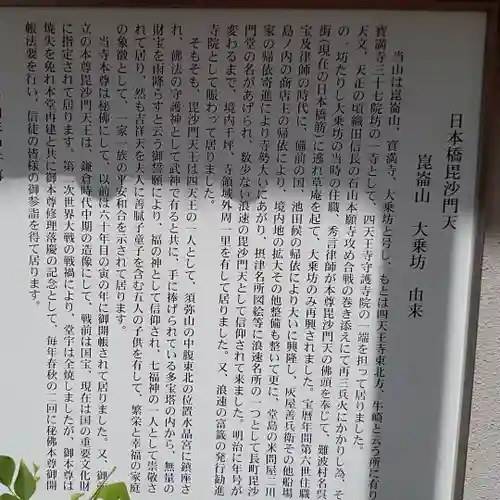 日本橋毘沙門天
崑崙山 大乗坊 由来
当山は崑崙山、寳満寺、大乗坊と号し、もとは四天王寺東北方、牛崎と云う所に有
寳満寺三十七院坊の一寺として、四天王寺守護寺院の一端を担って居りました。
天文、天正の頃織田信長の石山本願寺攻め合戦の巻き添えにて再三兵火にかかりし為、そ
の一坊たりし大乗坊の当時の住職、秀言律師が本尊毘沙門天の佛頭を奉じて、難波村名呉
街(現在の日本橋筋)に逃れ草庵を起て、大乗坊のみ再興されました。宝暦年間第六世住職
宝及律師の時代に、備前の国、池田候の帰依により大いに興隆し、灰屋善兵衛その他船場
島ノ内の商店主の帰依により、境内地の拡大その他整備も整いて更に、堂島の米問屋二川
家の帰依寄進により寺勢大いにあがり、摂津名所図絵等に浪速名所の一つとして長町毘沙
門堂の名があげられ、数少ない浪速の毘沙門天として信仰されて来ました。明治に年号が
変わるまで、境内千坪、寺領城外周一里を有して居りました。又、浪速の富籤の発行勧進
寺院として賑わって居りました。
そもそも、毘沙門天王は四天王の一人として、須弥山の中腹東北の位置水晶宮に鎮座さ
れ、佛法の守護神として武神で有ると共に、手に捧げられている多宝塔の内から、無量の
財宝を雨降らすと云う御誓願により、福の神として信仰され、七福神の一人として崇敬さ
れて居り、然も吉祥天を夫人に善膩子童子を含む五人の子供を有して、繁栄と幸福の家庭
の象徴として、一家一族の平安和合を示されて居ります。
当寺本尊は秘佛にして、以前は六十年目の寅の年に御開帳されて居りました。又、御
立の本尊毘沙門天王は、鎌倉時代中期の造像にして、戦前は国宝、現在は国の重要文化財
に指定されて居ります。第二次世界大戦の戦禍により、堂宇は全焼しましたが、御本尊は
焼失を免れ本堂再建と共に御本尊修理落慶の記念として、毎年春秋の二回に秘佛本尊御開
帳法要を行い、信徒の皆様の御参詣を得て居ります。